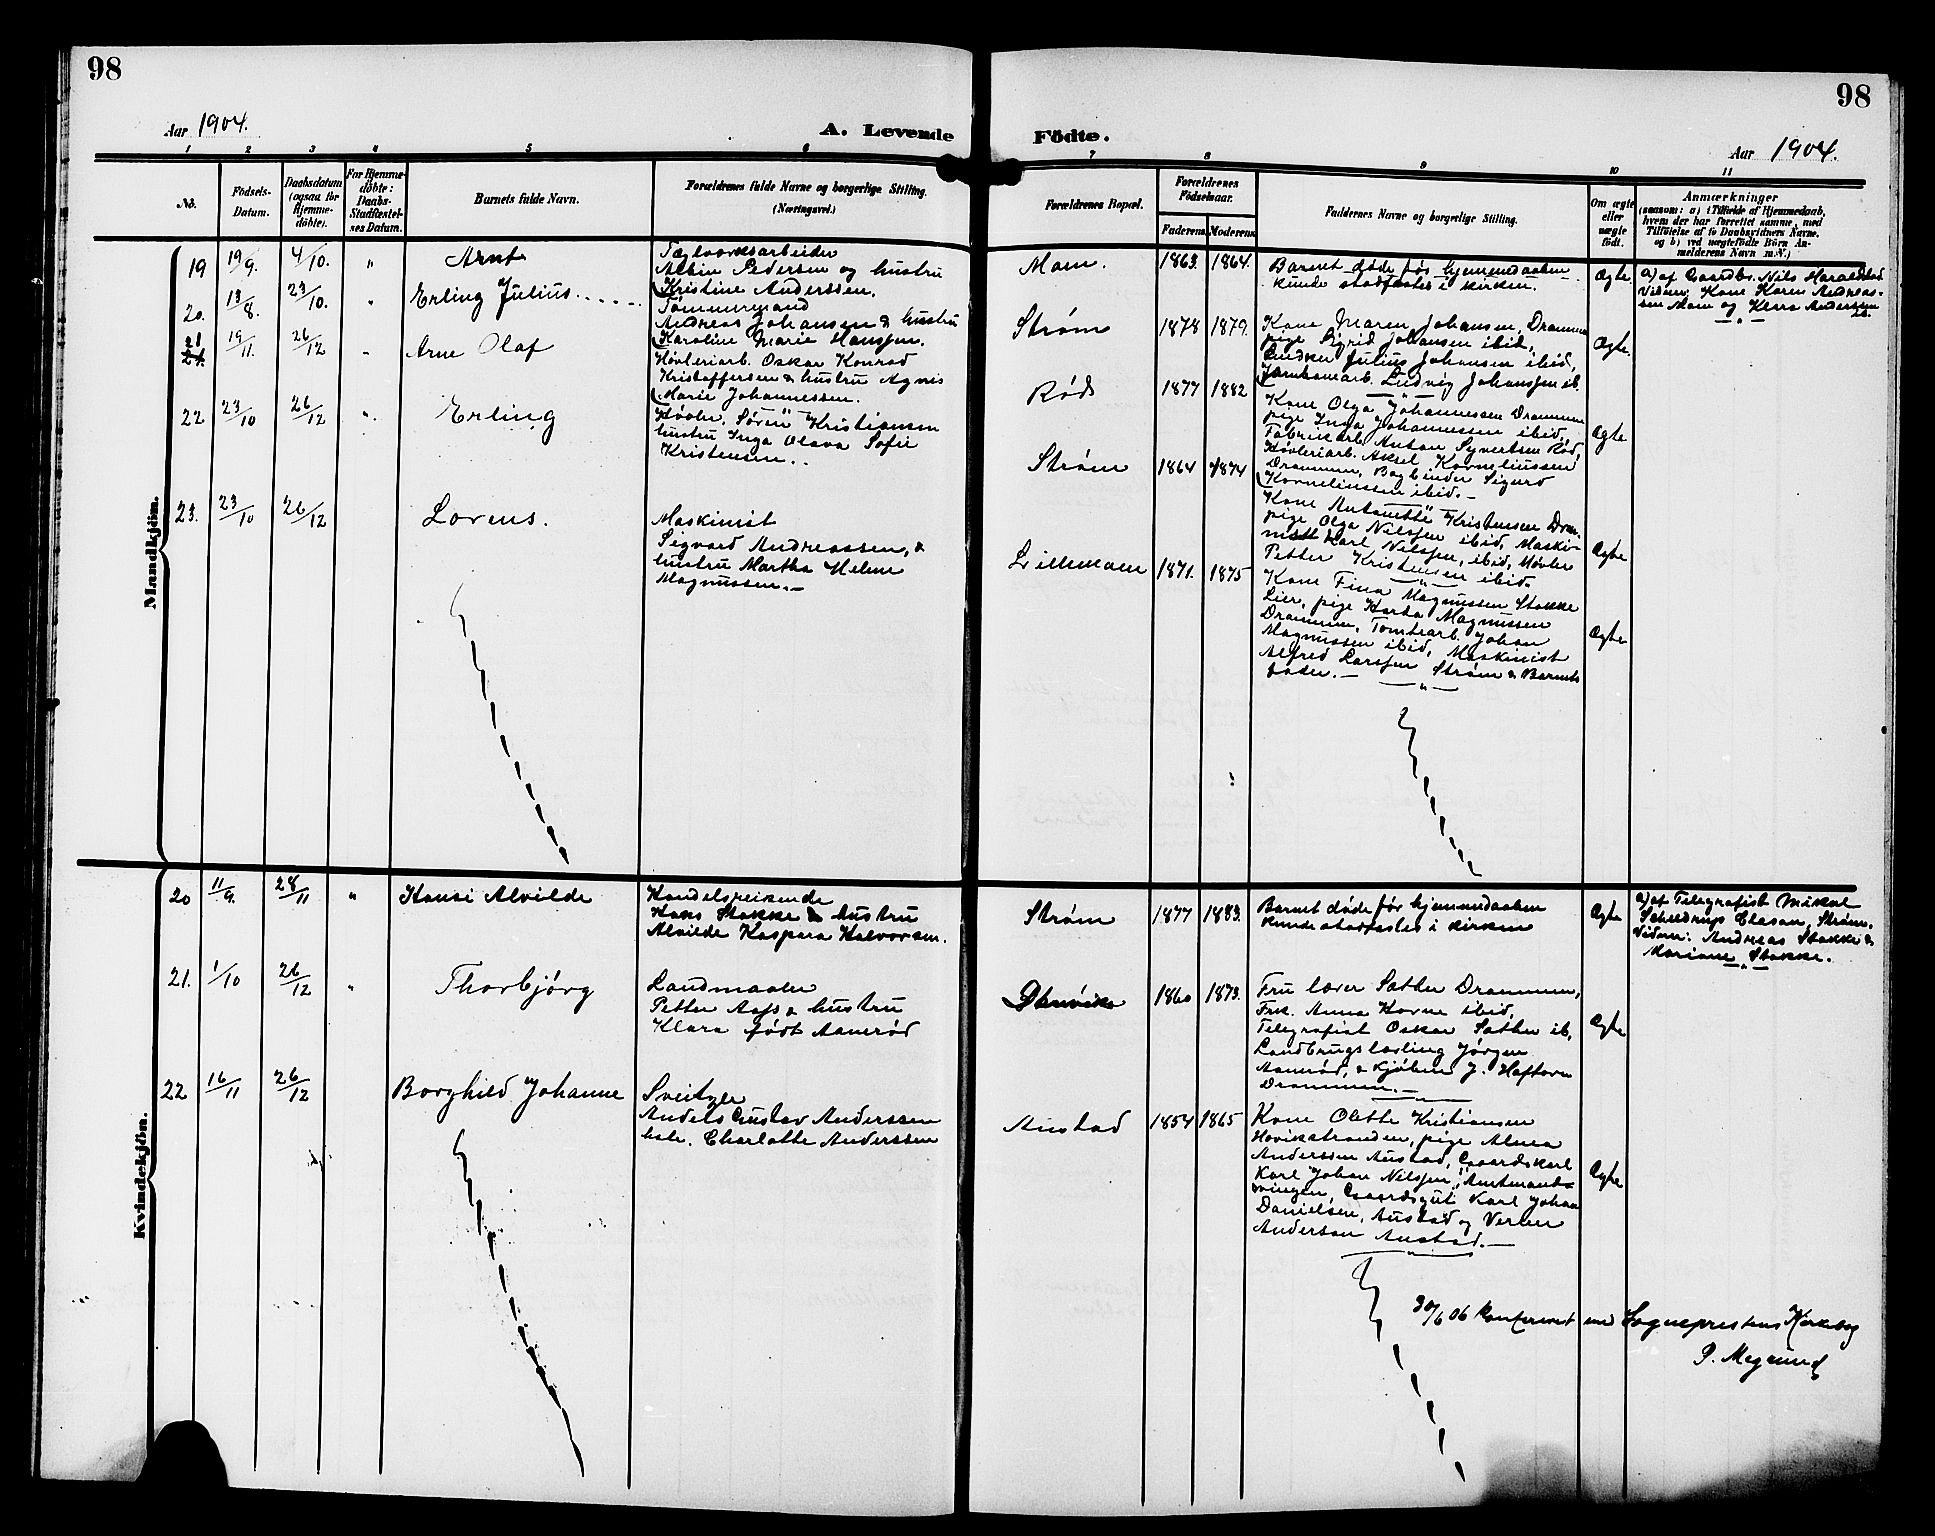 98
98
Aar 1904.
A. Levende
Födte.
Aar 1904.
1 2 3 4 5 6 7 8 9 10 11
No.
Födsels-
Datum.
Daabsdatum
(ogsaa for
Hjemme-
döbte).
For Hjemme-
döbte:
Daabs-
Stadfæstel-
ses Datum.
Barnets fulde Navn.
Forældrenes fulde Navne og borgerlige Stilling.
(Næringsvei.)
Forældrenes Bopæl.
Forældrenes
Födselsaar.
Faderens. Moderens.
Faddernes Navne og borgerlige Stilling.
Om ægte
eller
uægte
födt.
Anmærkninger
(saasom: a) i Tilfælde af Hjemmedaab,
hvem der har forrettet samme, med
Tilföielse af to Daabsvidners Navne,
og b) ved uægtefödte Börn An-
melderens Navn m.V.)
Mandkjön.
19 19/9. 4/10. " Arnt
Teglverksarbeider
Albin Pedersen og hustru
Kristine Anderssen.
Moen. 1863. 1864.
Barnet døde før hjemmedaaben
kunde stadfæstes i kirken.
Ægte
a) af Gaardbr. Nils Haraldstad
Vidner: Kone Karen Andreas-
sen Moen og Klara Andersen
20. 13/8. 23/10. " Erling Julius
Tømmermand
Andreas Johansen & hustru
Karoline Marie Hanssen.
Strøm 1878 1879.
Kone Maren Johansen, Drammen
pige Sigrid Johansen ibid,
Snedker Julius Johansen ibid,
Jernbanearb. Ludvig Johanssen ib.
Ægte.
21 19/11. 26/12 " Arne Olaf
Høvleriarb. Oskar Konrad
Kristoffersen & hustru Agnes
Marie Johannessen.
Rød 1877 1882
Kone Olga Johannessen Drammen
pige Inga Johannessen ibid,
Fabrikarb. Anton Syvertsen Rød,
Høvleriarb. Aksel Korneliussen
Drammen, Bogbinder Sigurd
Korneliussen ibid.
Ægte
22 23/10 26/12 " Erling
Høvler. Søren Kristiansen
hustru Inga Olava Sofie
Kristensen.
Strøm 1864 1874
Kone Antonette Kristensen Dram-
pige Olga Nilssen ibid, Maski-
nist Karl Nilssen, ibid, Høvler
Petter Kristensen ibid.
Ægte
23. 23/10 26/12 Lorens.
Maskinist
Sigvard Andreassen, &
hustru Martha Helene
Magnussen.
Lillemoen 1871. 1875
Kone Fina Magnussen Stokke
Lier, pige Harda Magnussen
Drammen, Tomtearb. Johan
Magnussen ibid, Maskinist
Alfred Larssen Strøm & Barnets
fader.
Ægte
Kvindekjön.
20 11/9. 28/11 " Hansi Alvilde
Handelsreisende
Hans Stokke & hustru
Alvilde Kaspara Halvorsen.
Strøm 1877 1883.
Barnet døde før hjemmedaaben
kunde stadfæstes i kirken
Ægte
a) af Telegrafist Mikal
Schieldrup Clasen, Strøm.
Vidner: Andreas Stokke &
Mariane Stokke.
21. 1/10 26/12 " Thorbjørg
Landmaaler
Petter Aass & hustru
Klara født Aamrød
1860 1873.
Fru lærer Sæther Drammen,
Frk. Anna Horne ibid,
Telegrafist Oskar Sæther ib,
Landbrugslærling Jørgen
Aamrød, & Kjøbm J. Haftorn
Drammen.
Ægte
22 16/11 26/12 Borghild Johanne
Sveitzer
Anders Gustav Anderssen
hstr. Charlotte Anderssen
Austad 1854 1865
Kone Olette Kristiansen
Hovikstranden, pige Alma
Anderssen Austad, Gaardskarl
Karl Johan Nilssen, Amtmand-
svingen, Gaardsgut Karl Johan
Danielsen, Austad og Verner
Andersen Austad.
Ægte
30/6 06 konfereret med Sogneprestens Kirkebog
P. Megrund